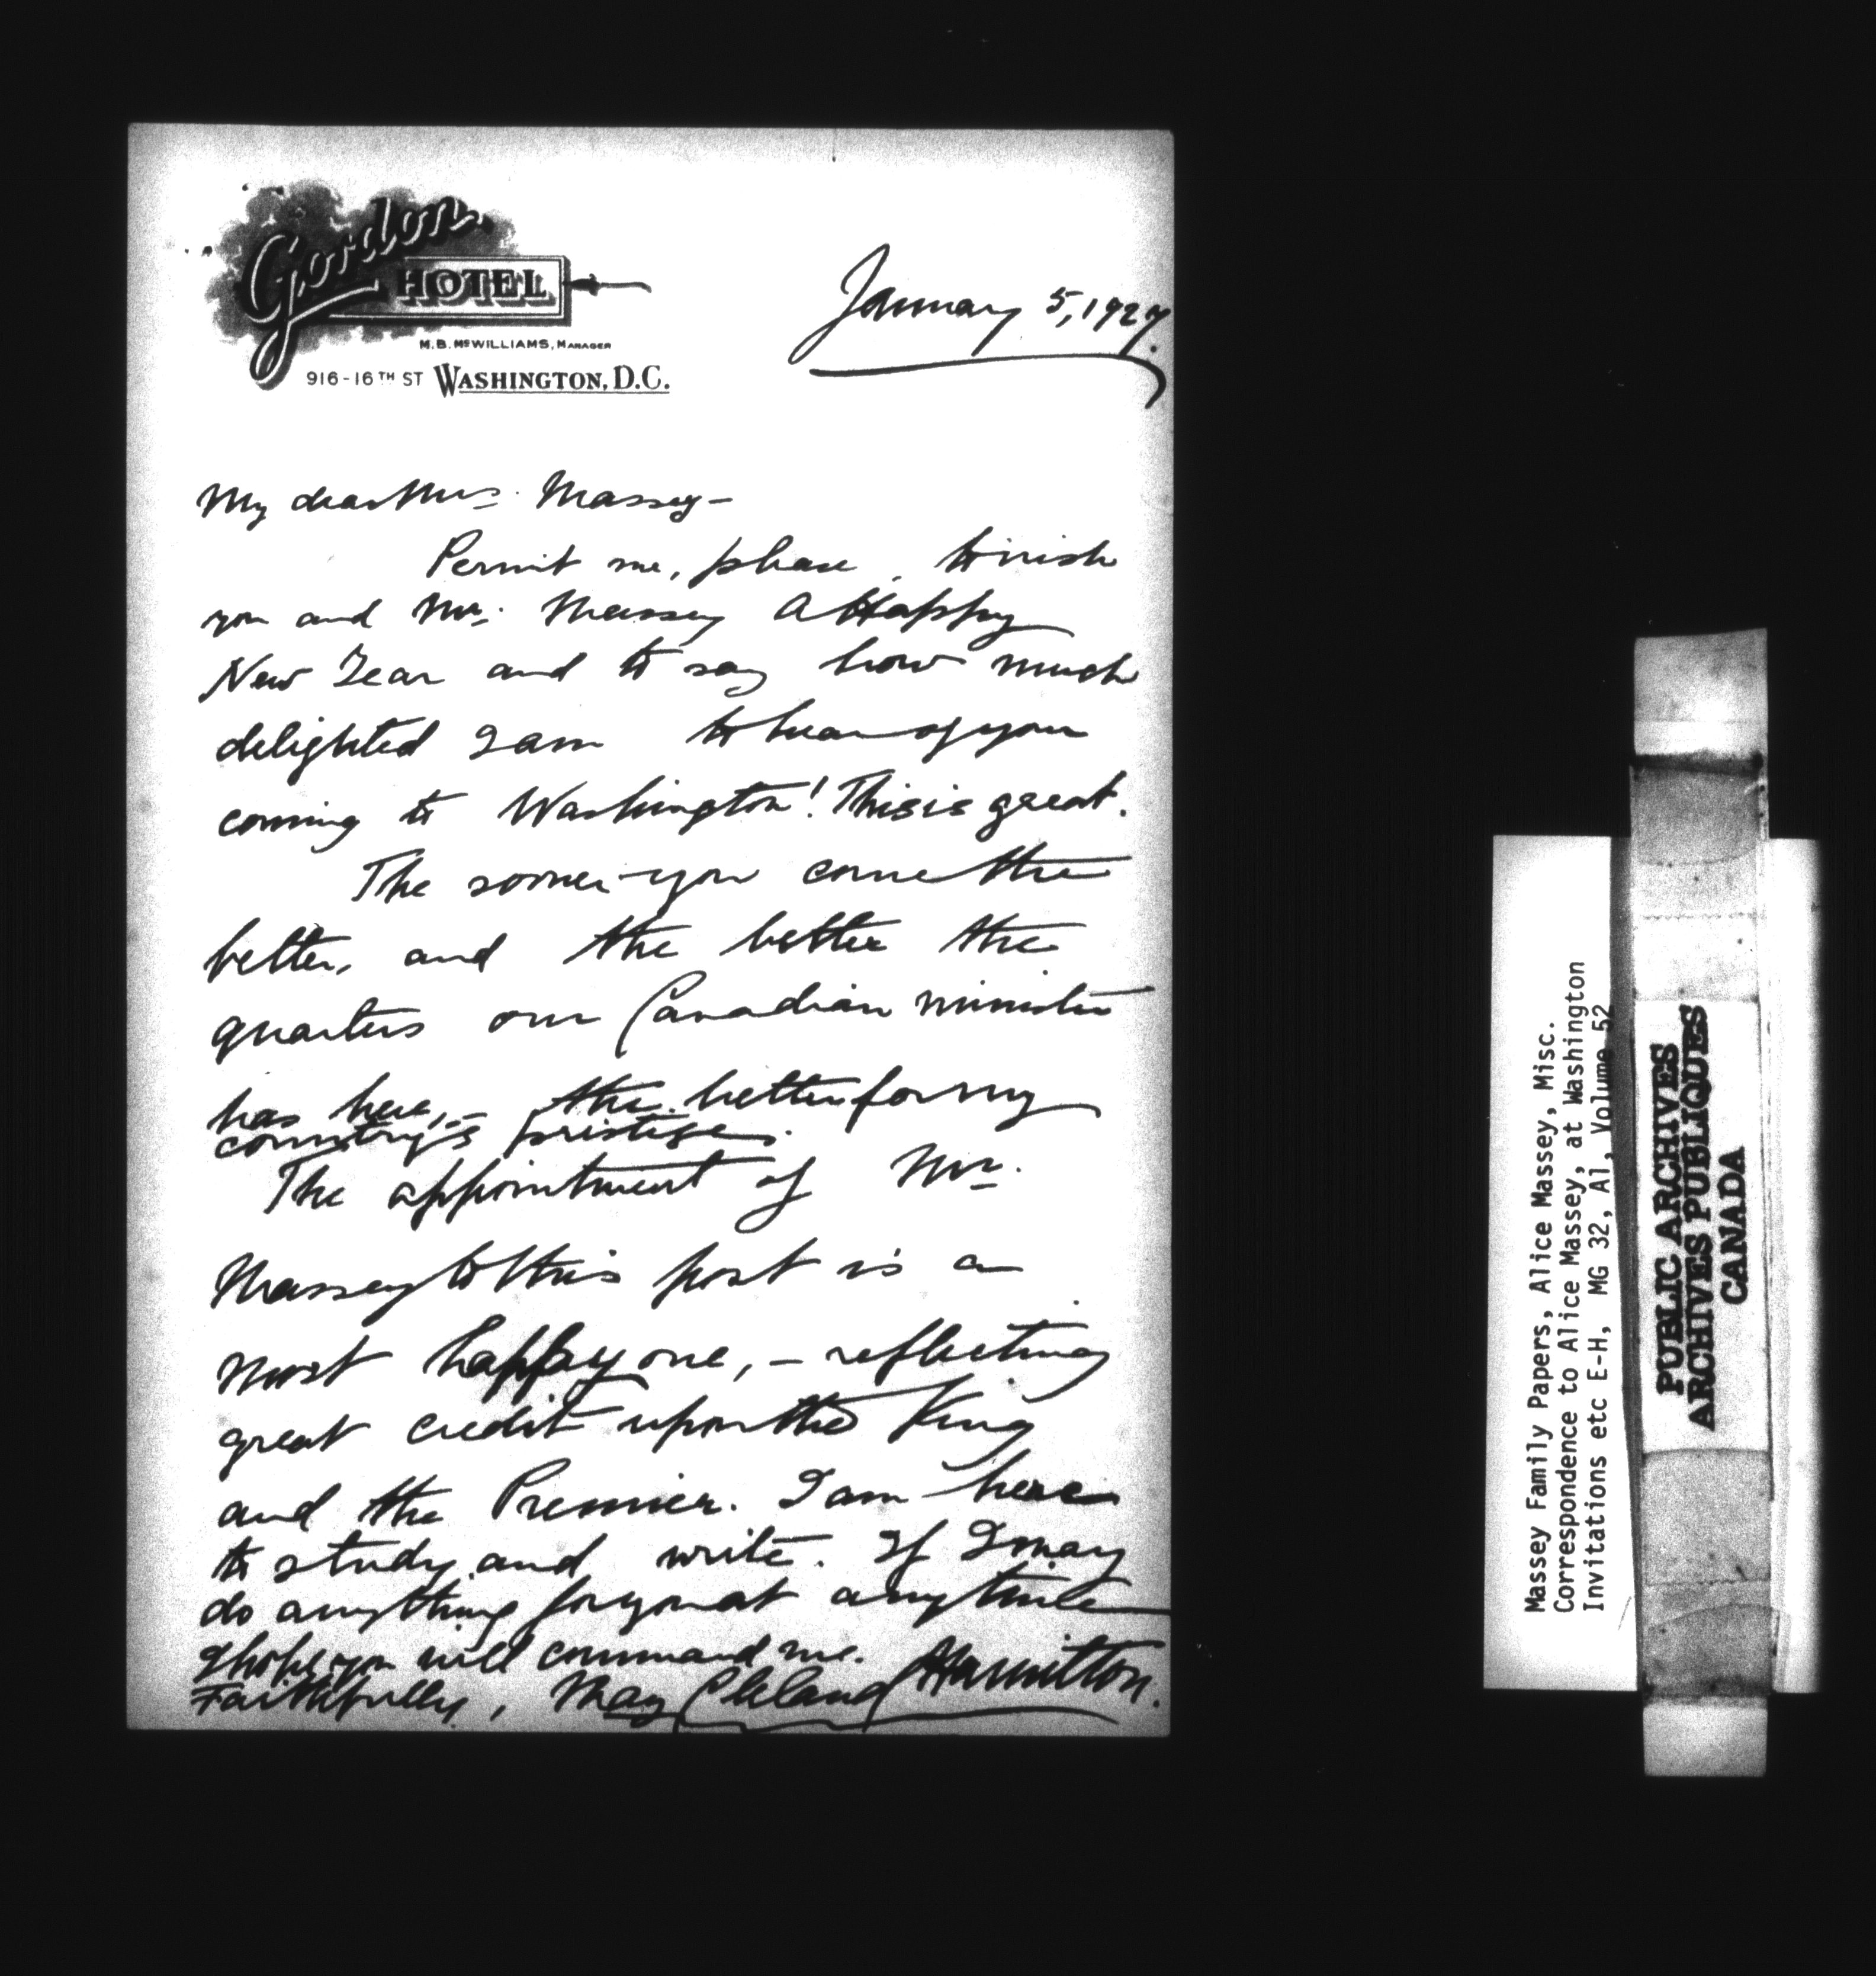 Gordon
HOTEL
M.B. McWILLIAMS, MANAGER
916-16TH ST WASHINGTON, D.C.
January 5, 1927.
My dear Mrs. Massey-
Permit me, please, to wish
you and Mr. Massey A Happy
New Year and to say how much
delighted I am to hear of your
coming to Washington! This is great.
The sooner you come the
better, and the better the
quarters our Canadian minister
has here,- the better for my
country's prestige.
The appointment of Mr.
Massey to this post is a
most happy one, - reflecting
great credit upon the King
and the Premier. I am here
to study and write. If I may
do anything for you at any time
I hope you will command me.
Faithfully, May Cleland Hamilton.
Massey Family Papers, Alice Massey, Misc.
Correspondence to Alice Massey, at Washington
Invitations etc E-H, MG 32, A1, Volume 52
PUBLIC ARCHIVES
ARCHIVES PUBLIQUES
CANADA